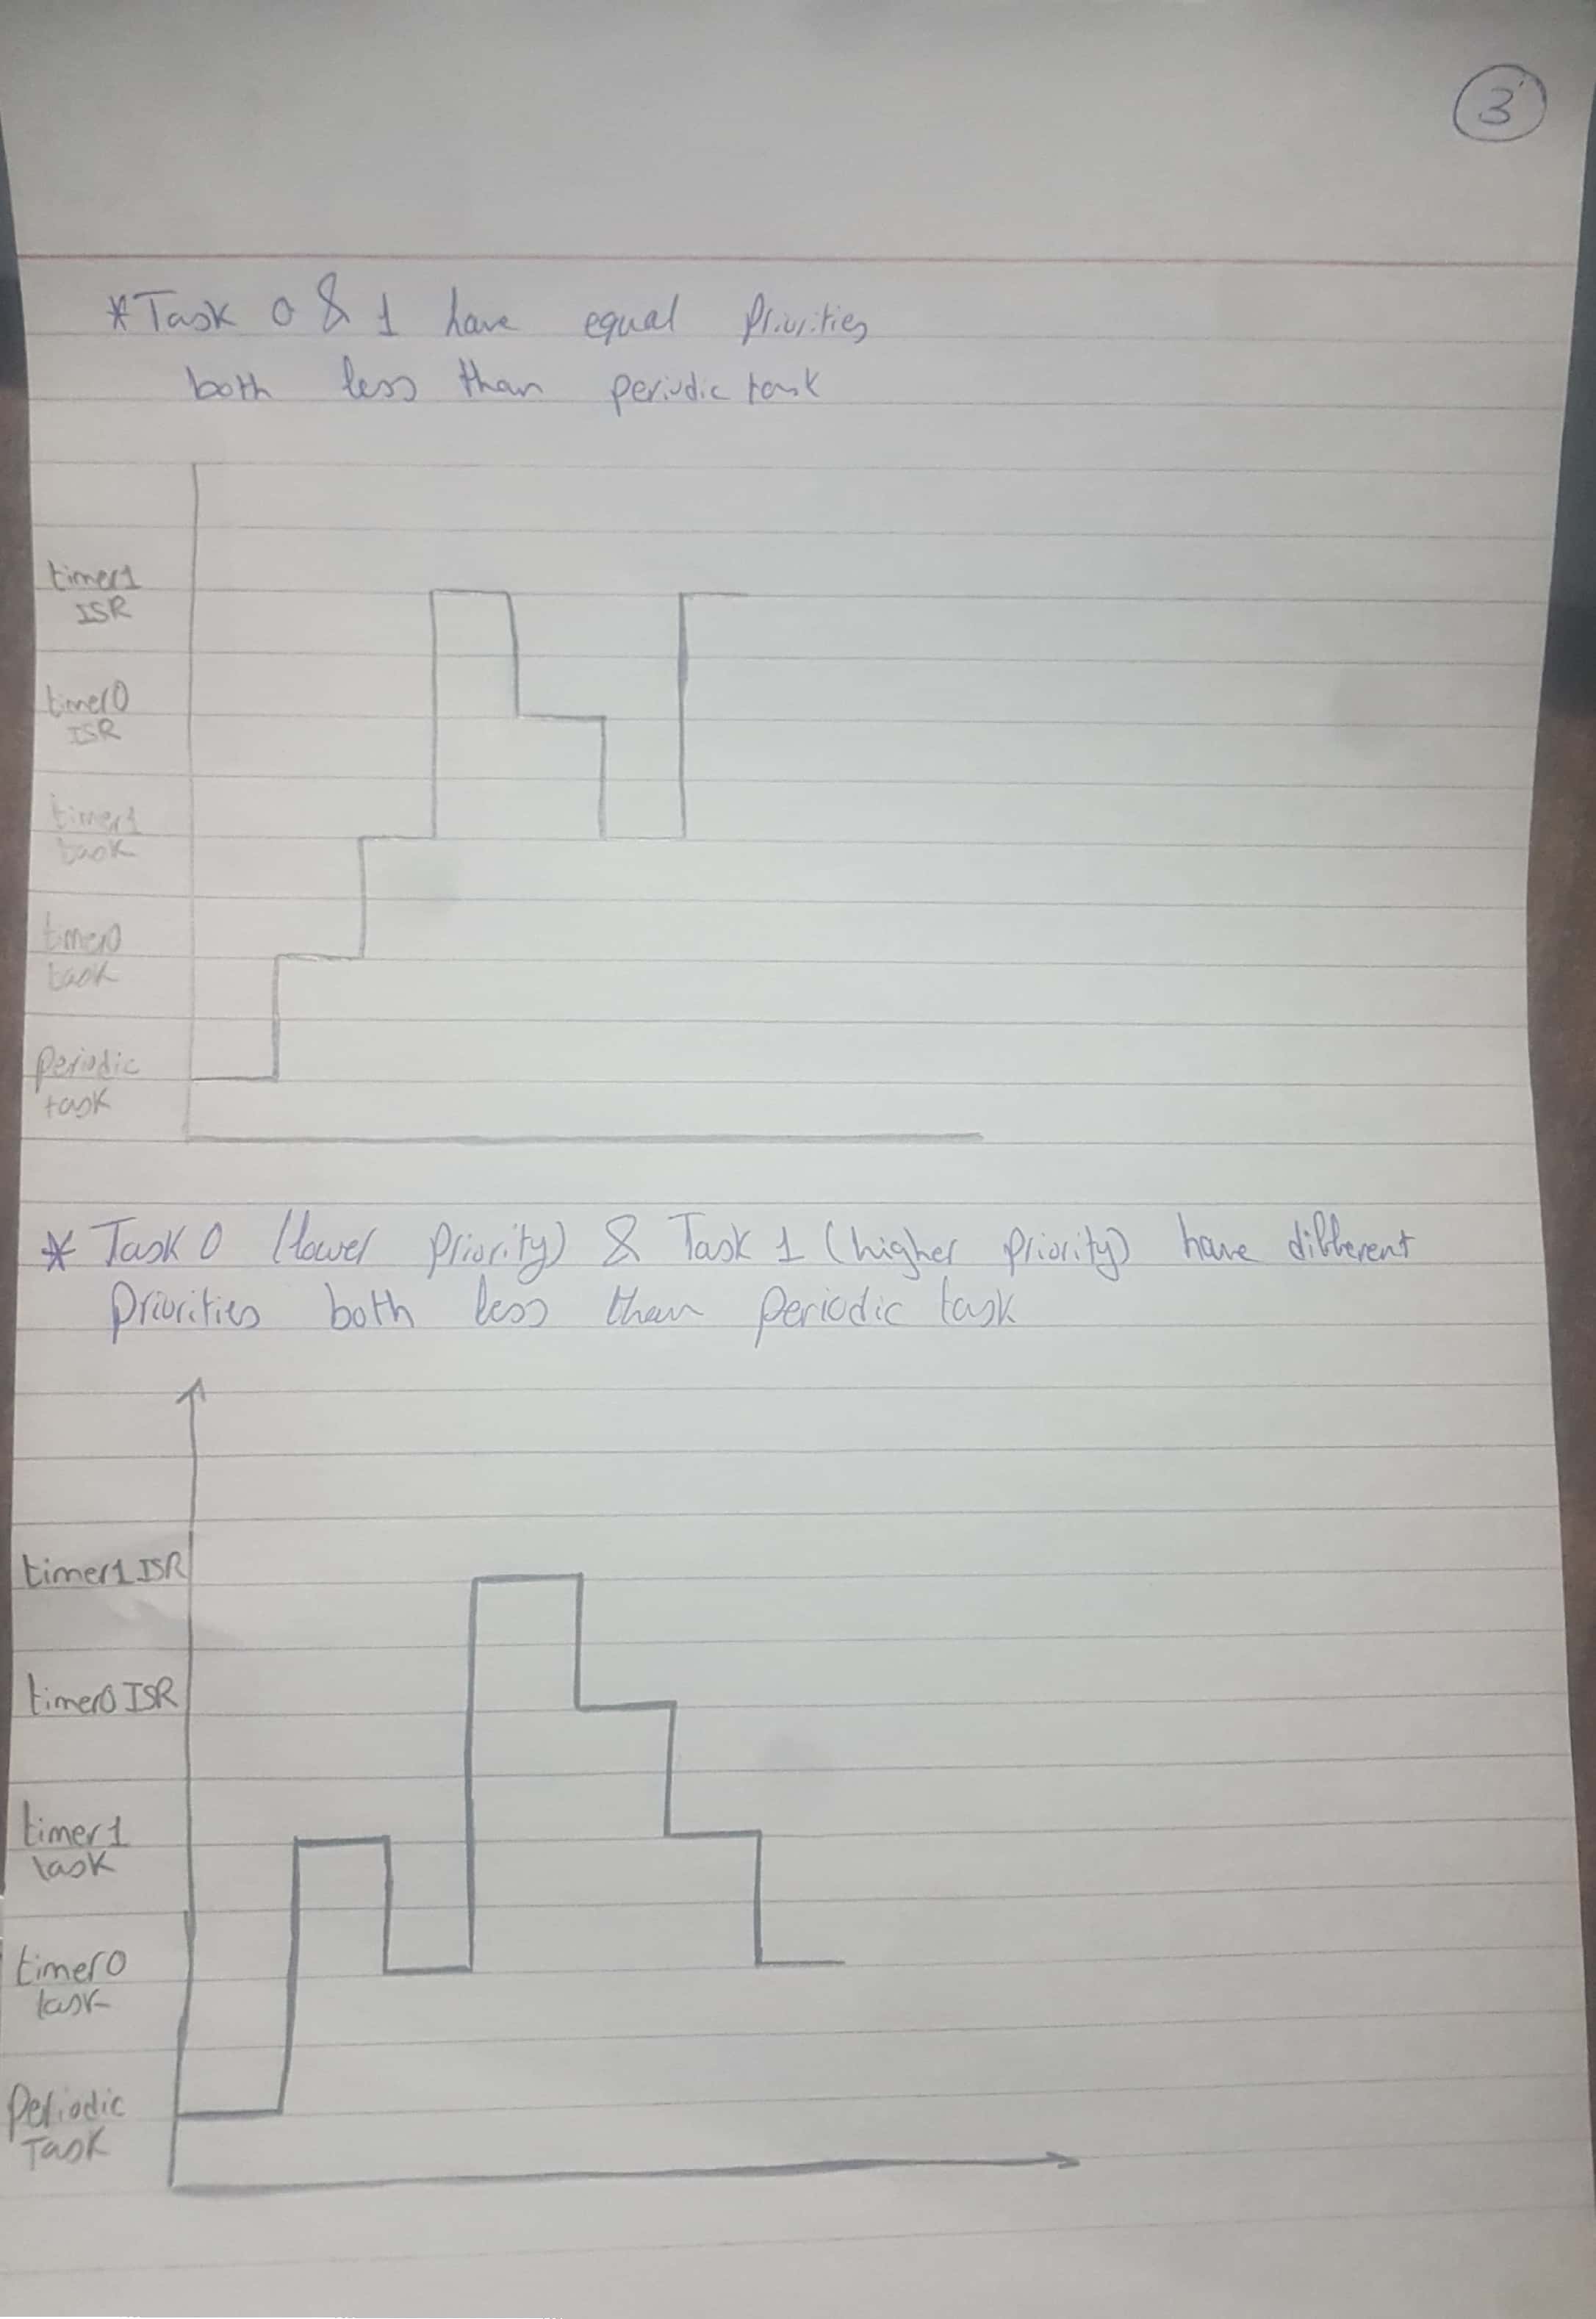 3
*Task 0 & 1 have equal priorities
both less than periodic task
timer1
ISR
timer0
ISR
timer1
task
timer0
task
Periodic
task
* Task 0 (lower priority) & Task 1 (higher priority) have different
priorities both less than periodic task
timer1 ISR
timer0 ISR
timer1
task
timer0
task
Periodic
Task